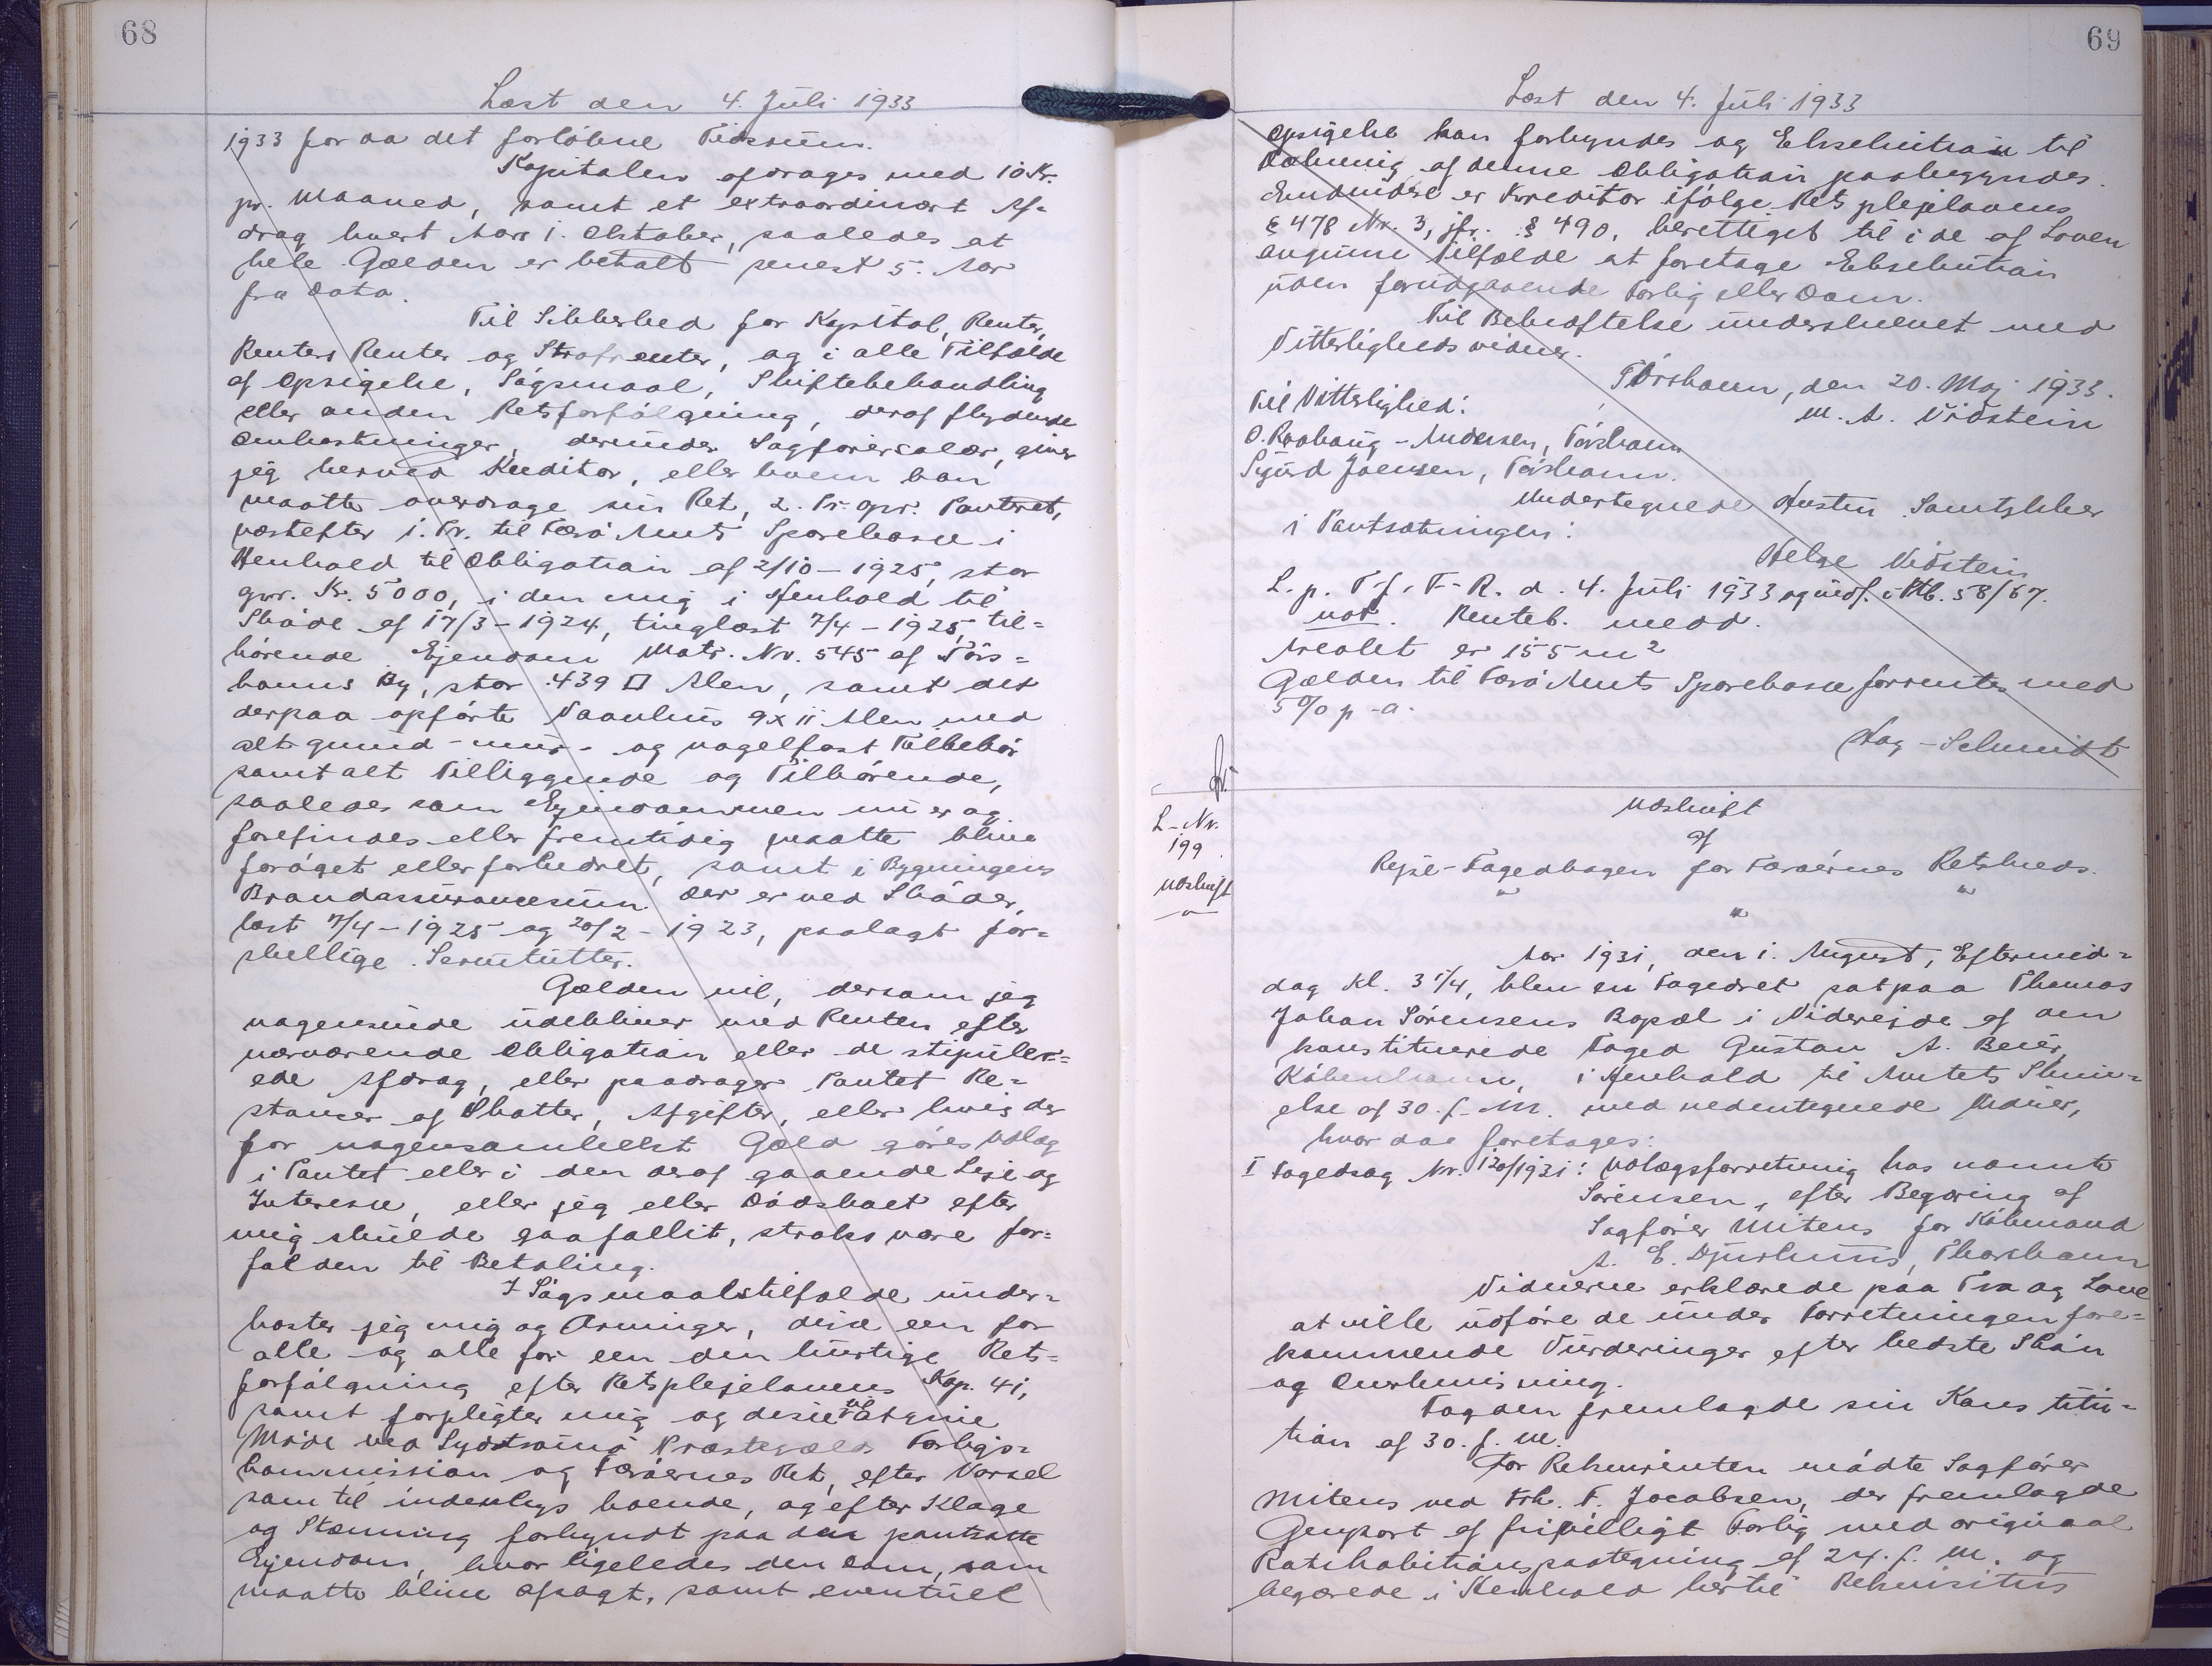 68
Læst den 4. Juli 1933
1933 for aa det forløbne Tidsrum.
Kapitalen afdrages med 10 Kr.
pr. Maaned, samt et extraordinært Af=
drag hvert Aar 1. Oktober, saaledes at
hele Gælden er betalt senest 5. Aar
fra Dato.
Til Sikkerhed for Kapital, Renter,
Renters Renter og Strafrenter, og i alle Tilfælde
af Opsigelse, Søgsmaal, Skiftebehandling
eller anden Retsforfølgning, deraf flydende
Omkostninger, derunder Sagførersalær, giver
jeg herved Kreditor, eller hvem han
maatte overdrage sin Ret, 2. Pr. opr. Panteret,
næstefter 1. Pr. til Færø Amts Sparekasse i
Henhold til Obligation af 2/10 - 1925, stor
opr. Kr. 5000, i den mig i Henhold til
Skøde af 17/3 - 1924, tinglæst 7/4 - 1925, til=
hørende Ejendom Matr. Nr. 545 af Tórs=
havns By, stor 439 □ Alen, samt det
derpaa opførte Vaanhus 9 x 11 Alen med
alt grund- mur- og nagelfast Tilbehør
samt alt Tilliggende og Tilhørende,
saaledes som Ejendommen nu er og
forefindes eller fremtidig maatte blive
forøget eller forbedret, samt i Bygningens
Brandassurancesum. Der er ved Skøder,
læst 7/4 - 1925 og 20/2 - 1923, paalagt for=
skellige Servitutter.
Gælden vil, dersom jeg
nogensinde udebliver med Renten efter
nærværende Obligation eller de stipuler=
ede Afdrag, eller paadrager Pantet Re=
stancer af Skatter, Afgifter, eller hvis der
for nogensomhelst Gæld gøres Udlæg
i Pantet eller i den deraf gaaende Leje og
Interesse, eller jeg eller Dødsboet efter
mig skulde gaa fallit, straks være for=
falden til Betaling.
I Søgsmaalstilfælde under=
kaster jeg mig og Arvinger, disse een for
alle og alle for een den hurtige Rets=
forfølgning efter Retsplejelovens Kap. 41,
samt forpligter mig og disse til at give
Møde ved Sydstrømø Præstegælds Forligs=
kommission og Færøernes Ret, efter Varsel
som til indenbygs boende, og efter Klage
og Stævning forkyndt paa den pantsatte
Ejendom, hvor ligeledes den Dom, som
maatte blive afsagt, samt eventuel
69
Læst den 4. Juli 1933
Opsigelse kan forkyndes og Eksekution til
Dækning af denne Obligation paabegyndes.
Endvidere er Kreditor ifølge Retsplejelovens
§ 478 Nr. 3, jfr. § 490, berettiget til i de af Loven
angivne Tilfælde at foretage Eksekution
uden forudgaaende Forlig eller Dom.
Til Bekræftelse underskrevet med
Vitterlighedsvidner.
Tórshavn, den 20. Maj 1933.
M. A. Viðstein
Til Vitterlighed:
O. Andersen, Tórshavn
Sigurd Joensen, Tórshavn.
Undertegnede Hustru Samtykker
i Pantsætningen:
Helge Viðstein
L. p. T. f. F. R. d. 4. Juli 1933 og indf. i Ptb. 58/67.
not. Renteb. medd.
Arealet er 155 m²
Gælden til Færø Amts Sparekasse forrentes med
5 % p - a.
Aag - Schmidt
L - Nr.
199
Udskrift
Udskrift
af
Rejse-Fogedbogen for Færøernes Retskreds.
" " "
Aar 1931, den 1. August, Eftermid=
dag Kl. 3 1/4, blev en Fogedret sat paa Thomas
Johan Sørensens Bopæl i Viderejde af den
konstituerede Foged Gustav A. Beier,
København, i Henhold til Amtets Skriv=
else af 30. f. M. med nedentegnede Vidner,
hvor da foretages:
I Fogedsag Nr. 120/1931: Udlægsforretning hos nævnte
Sørensen, efter Begæring af
Sagfører Mitens for Købmand
A. E. Djurhuus, Thorshavn
Vidnerne erklærede paa Tro og Love
at ville udføre de under Forretningen fore=
kommende Vurderinger efter bedste Skøn
og Overbevisning.
Fogden fremlagde sin Konstitu=
tion af 30. f. M.
For Rekvirenten mødte Sagfører
Mitens ved Frk. F. Jacobsen, der fremlagde
Genpart af frivilligt Forlig med original
Ratihabitionspaategning af 24. f. M. og
begærede i Henhold hertil Rekvisitus